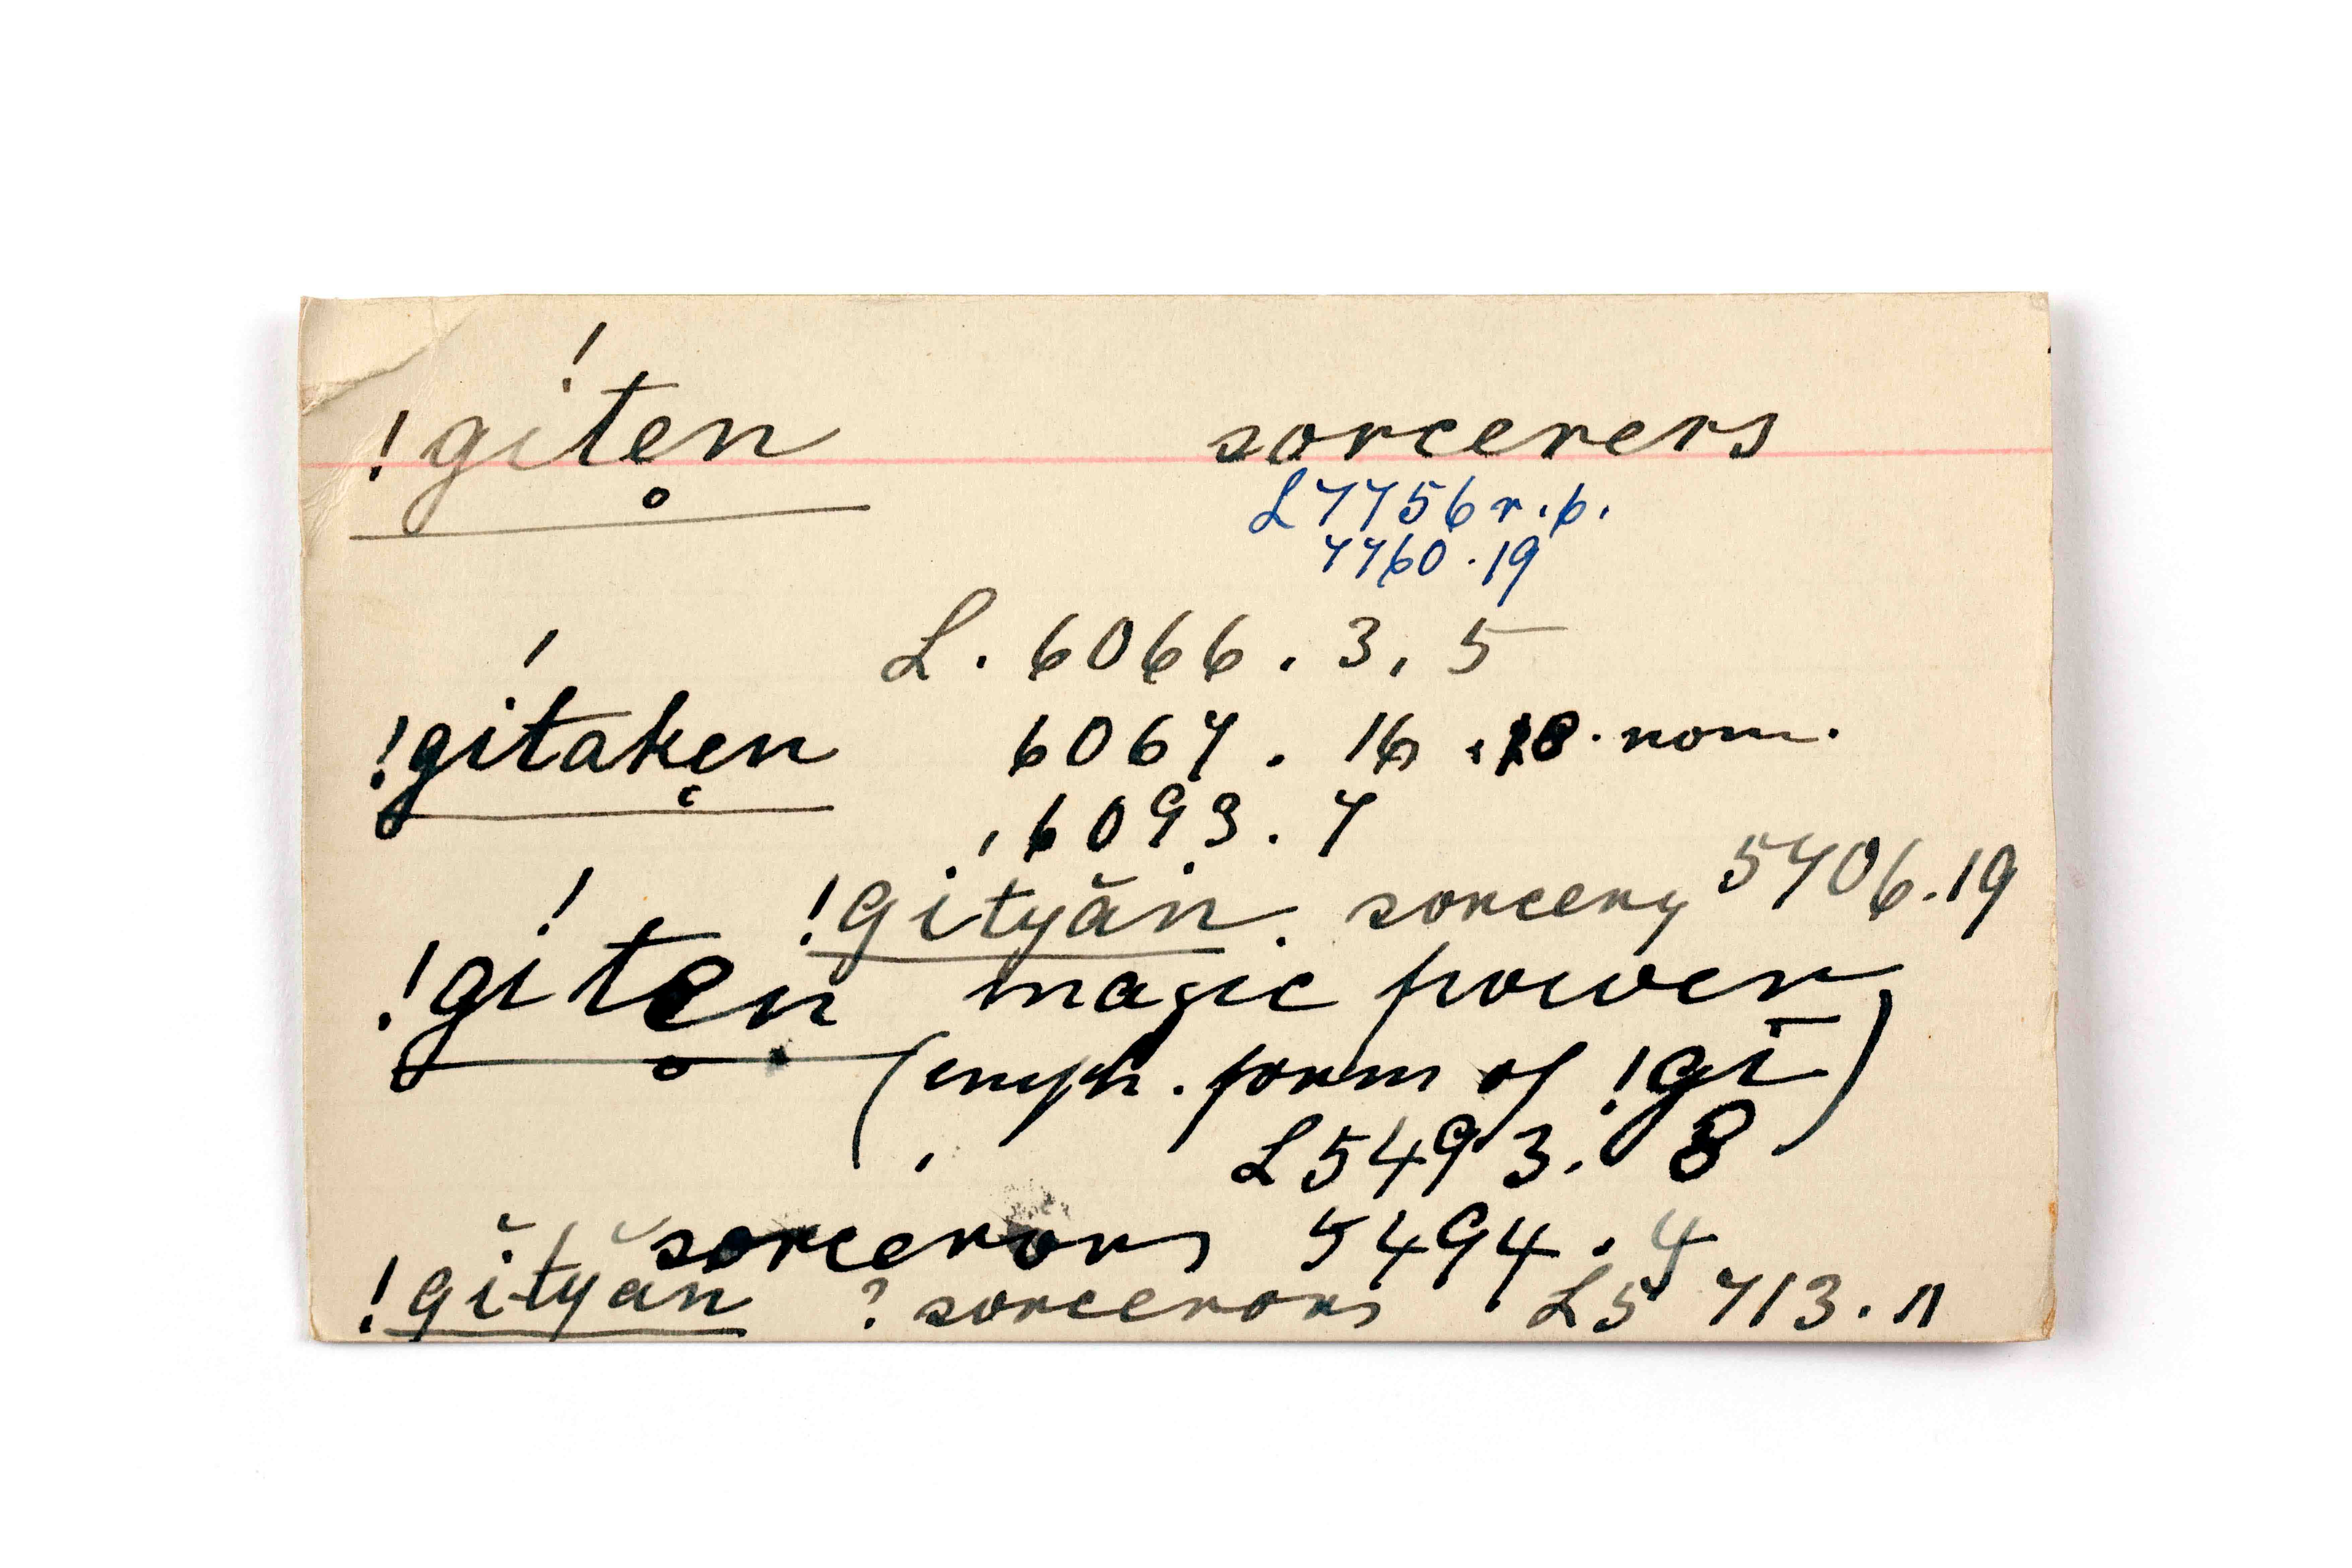 !gíten̥ sorcerers
L 7756 r.b.
7760.19
L. 6066.3,5
!gítaken 6067.16.18.nom.
6093.7
!gítyăn. sorcery 5706.19
!gíten̥ magic power
(emph. form of !gī)
L5493.8
sorcerors 5494.4
!gĭtyăn ? sorcerors L5713.11